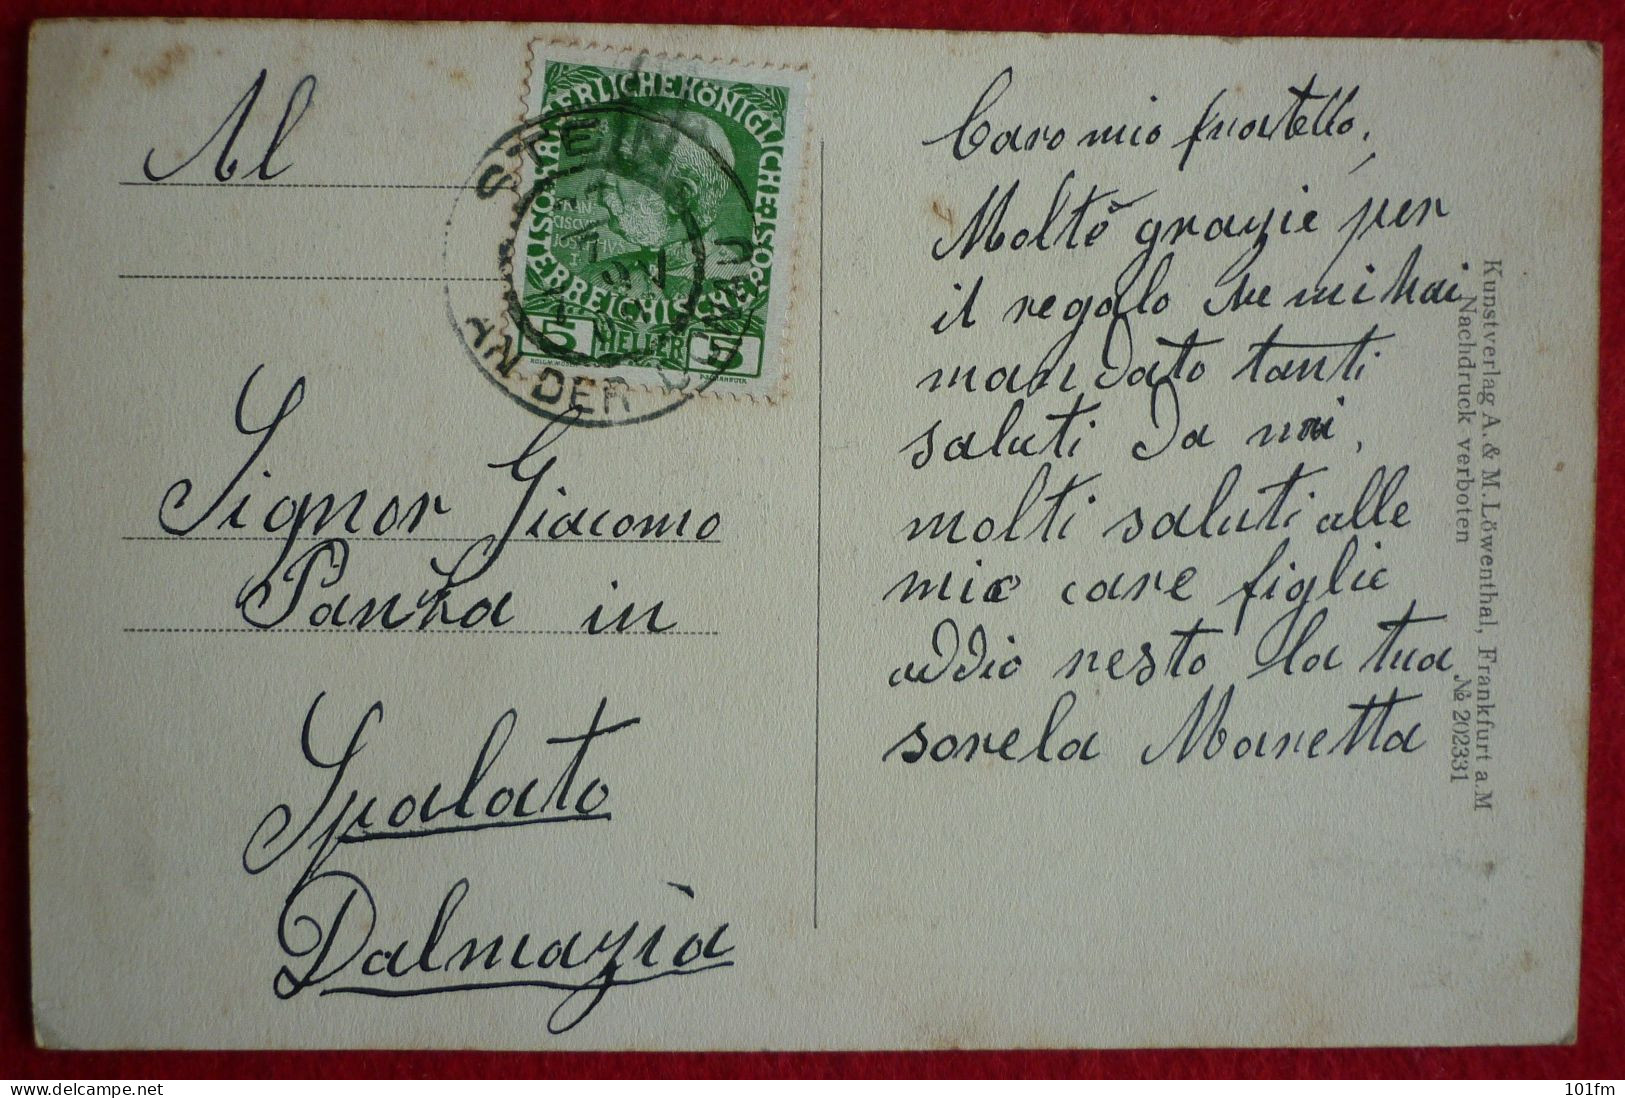 Al
Signor Giacomo
Panźa in
Spalato
Dalmazia
Caro mio fratello,
Molte grazie per
il regalo che mi hai
mandato tanti
saluti da noi,
molti saluti alle
mie care figlie
addio resto la tua
sorela Maretta
KAISERLICHE KÖNIGLICHE ÖSTERREICHISCHE POST
FRAN
CISCVS
IOSEPHVS
I
5 HELLER 5
STEIN
AN DER DONAU
Kunstverlag A. & M. Löwenthal, Frankfurt a.M
Nachdruck verboten № 202331
101fm